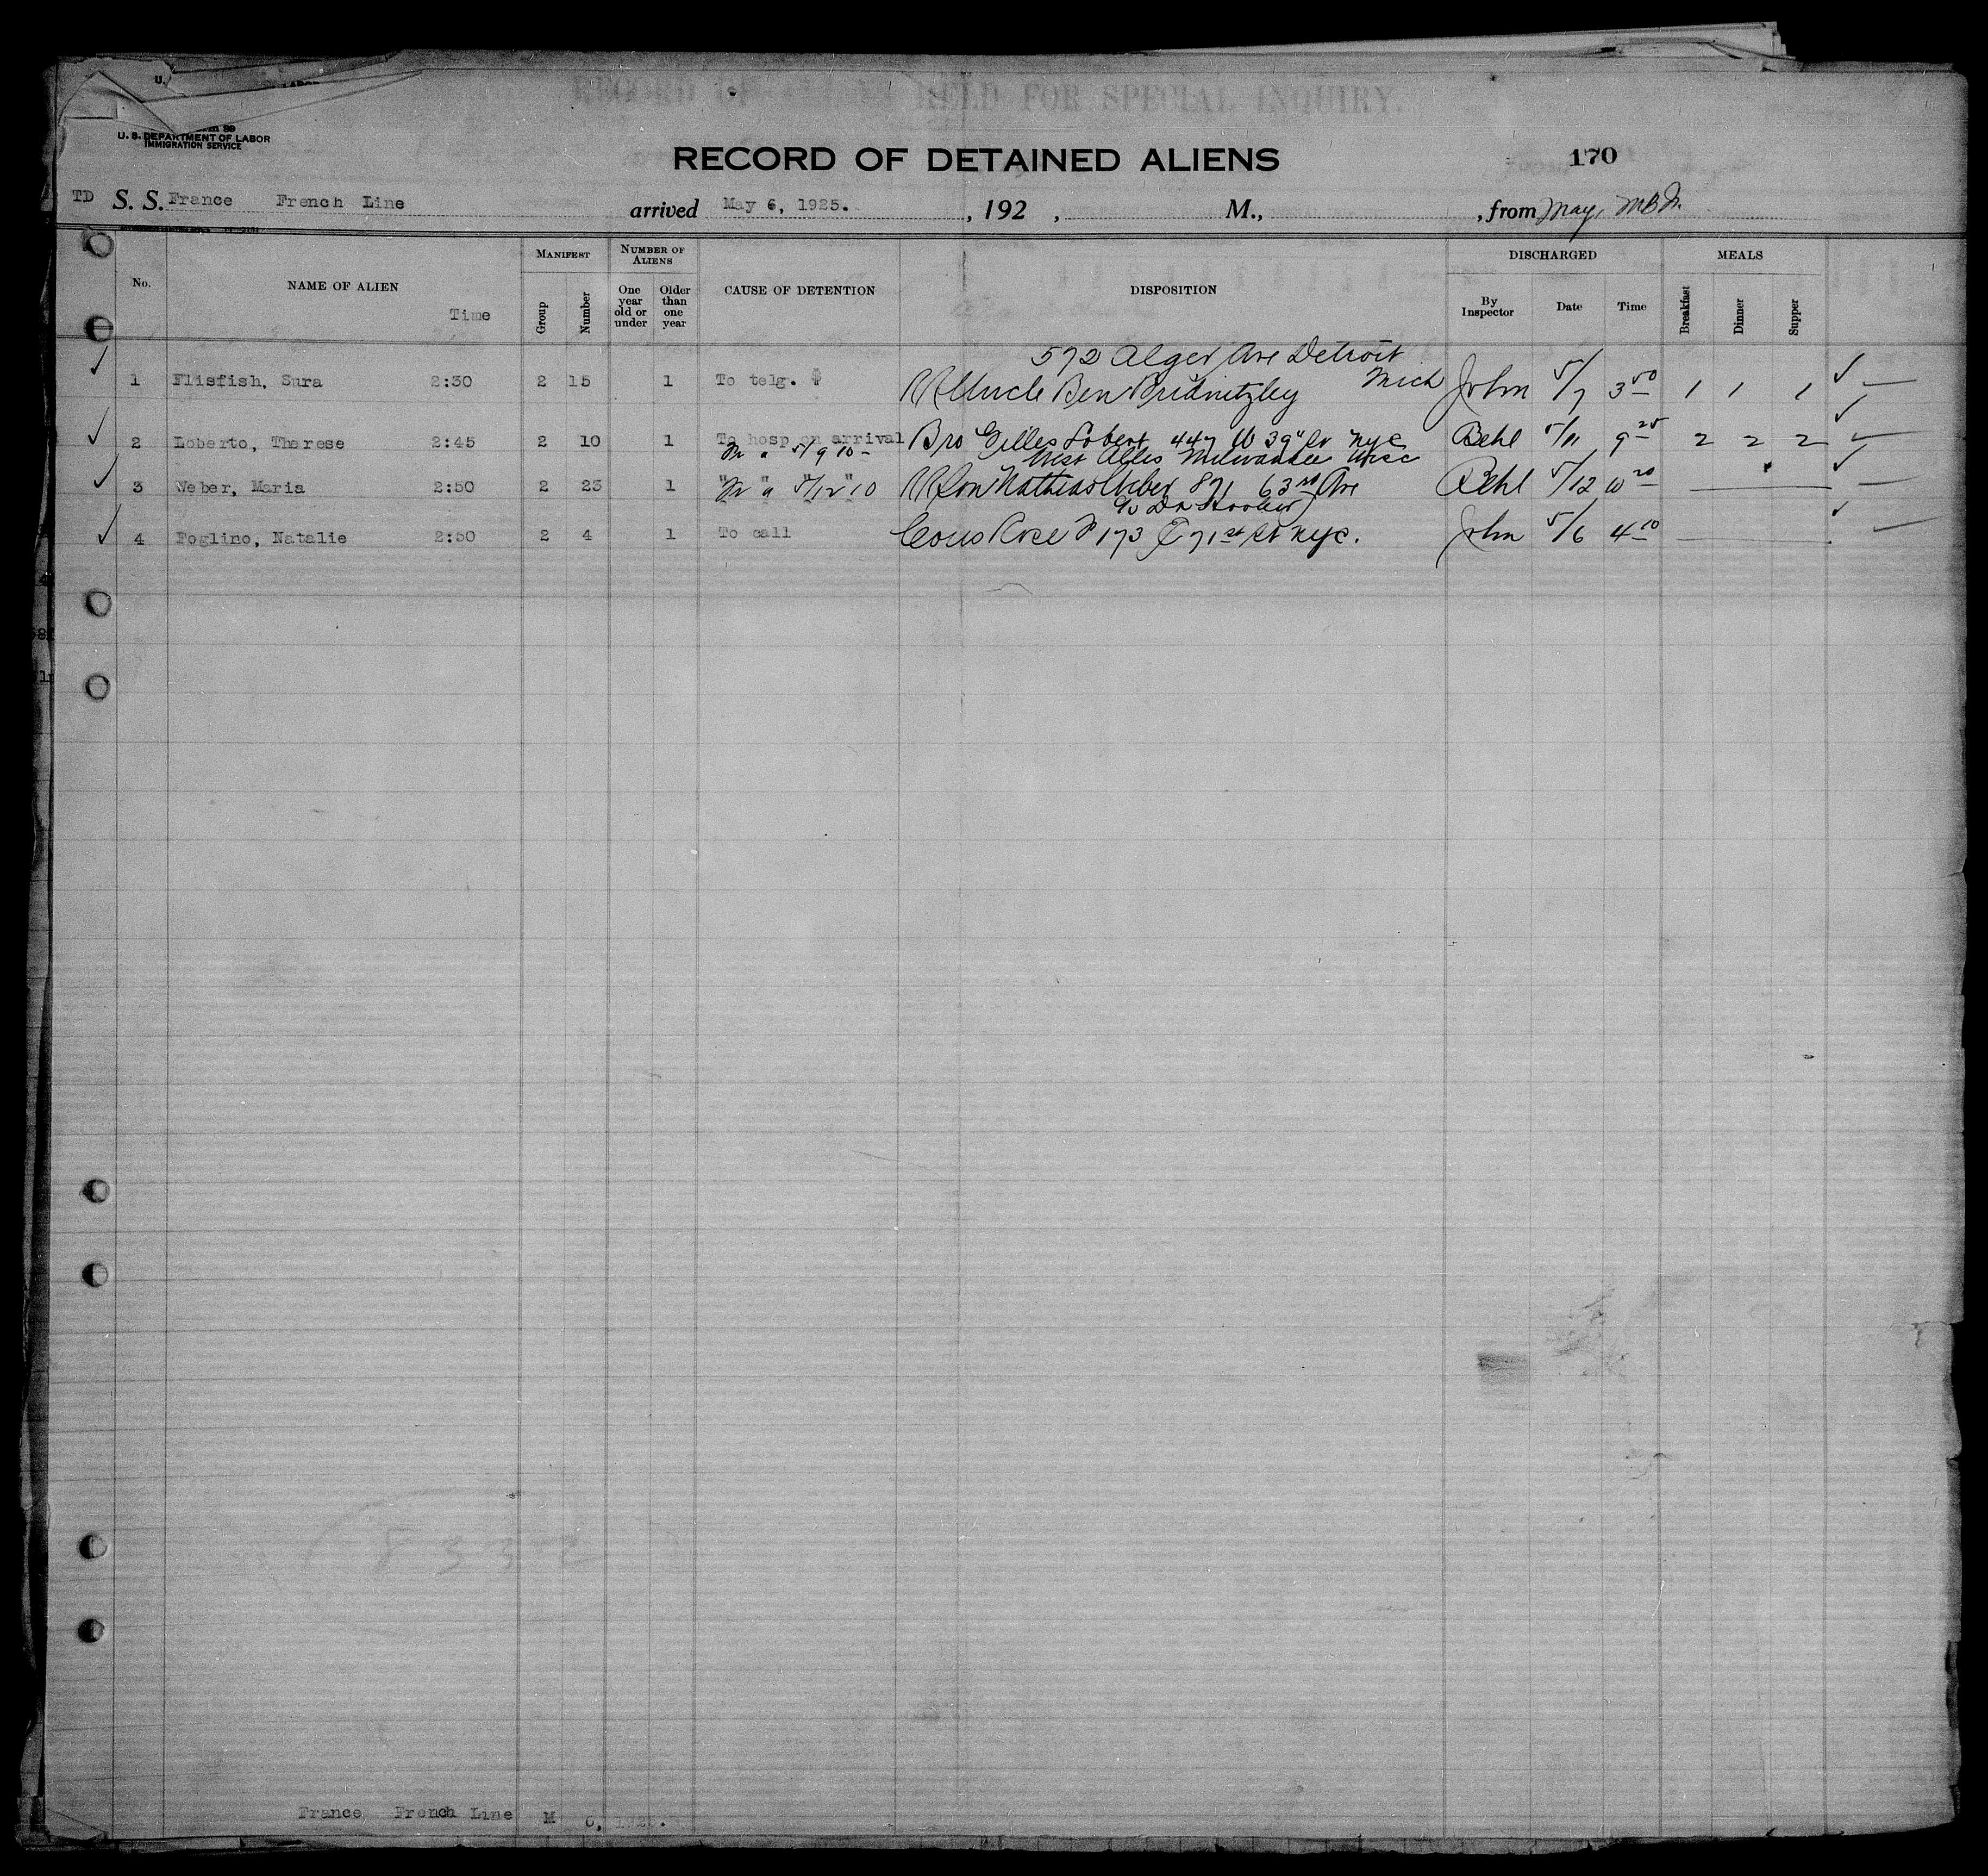 RECORD OF ALIENS HELD FOR SPECIAL INQUIRY.
U. S. DEPARTMENT OF LABOR
IMMIGRATION SERVICE
RECORD OF DETAINED ALIENS 170
TD S. S. France French Line arrived May 6, 1925. , 192 , M., , from May,
No. NAME OF ALIEN Time MANIFEST Group Number NUMBER OF ALIENS One year old or under Older than one year CAUSE OF DETENTION DISPOSITION DISCHARGED By Inspector Date Time MEALS Breakfast Dinner Supper
572 Alger Ave Detroit
1 Flisfish, Sura 2:30 2 15 1 To telg. Uncle Ben Mich John 5/7 3 50 1 1 1
2 Loberto, Therese 2:45 2 10 1 To hosp on arrival Bro Gilles Lobert 447 W 39" St nyc Behl 5/11 9 25 2 2 2
5/9 10 - West Allis Milwaukee Wisc
3 Weber, Maria 2:50 2 23 1 " " 5/12 10 Son Mathias Weber 871 63rd Ave Behl 5/12 10 20
4 Foglino, Natalie 2:50 2 4 1 To call Cous Rose 173 E 71st St nyc. John 5/6 4 10
8332
France French Line M 6, 1925.